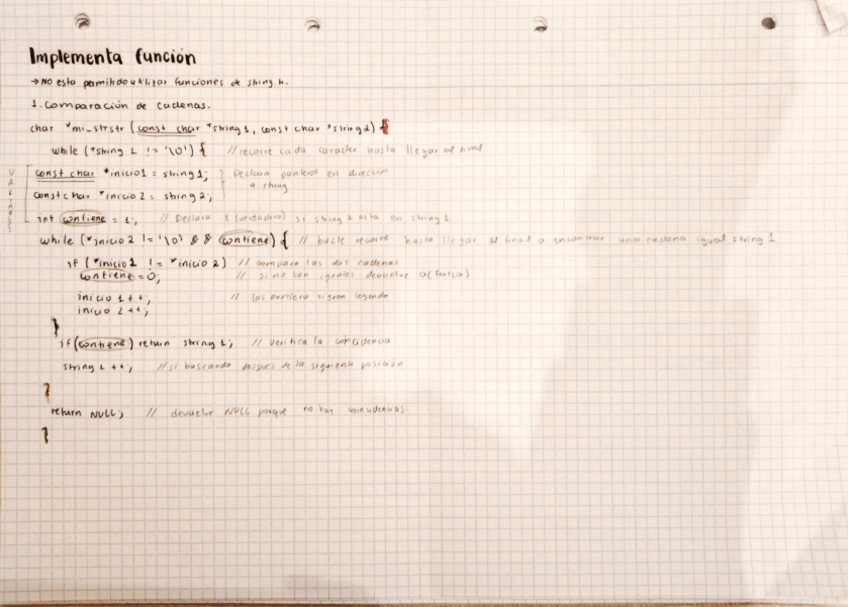 Implementa función
→ No esta permitido utilizar funciones de string.h.
1. Comparación de cadenas.
char *mi_strstr (const char *string1, const char *string2) {
while (*string 1 != '\0') { // recorre cada caracter hasta llegar al final
const char *inicio1 = string1; Declara punteros en dirección
a string
const char *inicio2 = string2;
VARIABLES
int contiene = 1; // Declara 1 (verdadero) si string 2 esta en string 1
while (*inicio2 != '\0' && contiene) { // bucle recorre hasta llegar al final o encontrar una cadena igual string 1
if (*inicio1 != *inicio2) // compara las dos cadenas
contiene = 0; // si no son iguales devuelve 0 (falso)
inicio 1 ++; // los puntero siguen leyendo
inicio 2 ++;
}
if (contiene) return string 1; // Verifica la coincidencia
string 1 ++; // si buscando despues de la siguiente posición
}
return NULL; // devuelve NULL porque no hay coincidencias
}